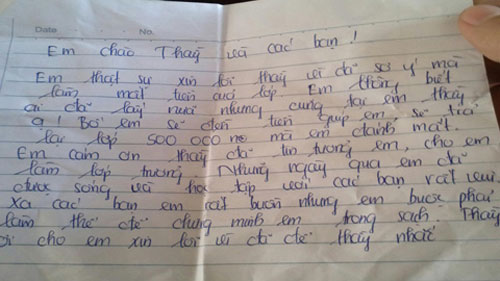 Date No.
Em chào Thầy và các bạn !
Em thật sự xin lỗi thầy vì đã sơ ý mà
làm mất tiền của lớp. Em không biết
ai đã lấy nưã nhưng cũng tại em thầy
ạ! Bởi em sẽ đền tiền quỹ em sẽ trả
lại lớp 500 000 mà em đánh mất.
Em cảm ơn thầy đã tin tưởng em, cho em
làm lớp trưởng. Những ngày qua em đã
được sống và học tập với các bạn rất vui.
Xa các bạn em rất buồn nhưng em buộc phải
làm thế để chứng minh em trong sạch. Thầy
cho em xin lỗi vì đã để thầy nhắc